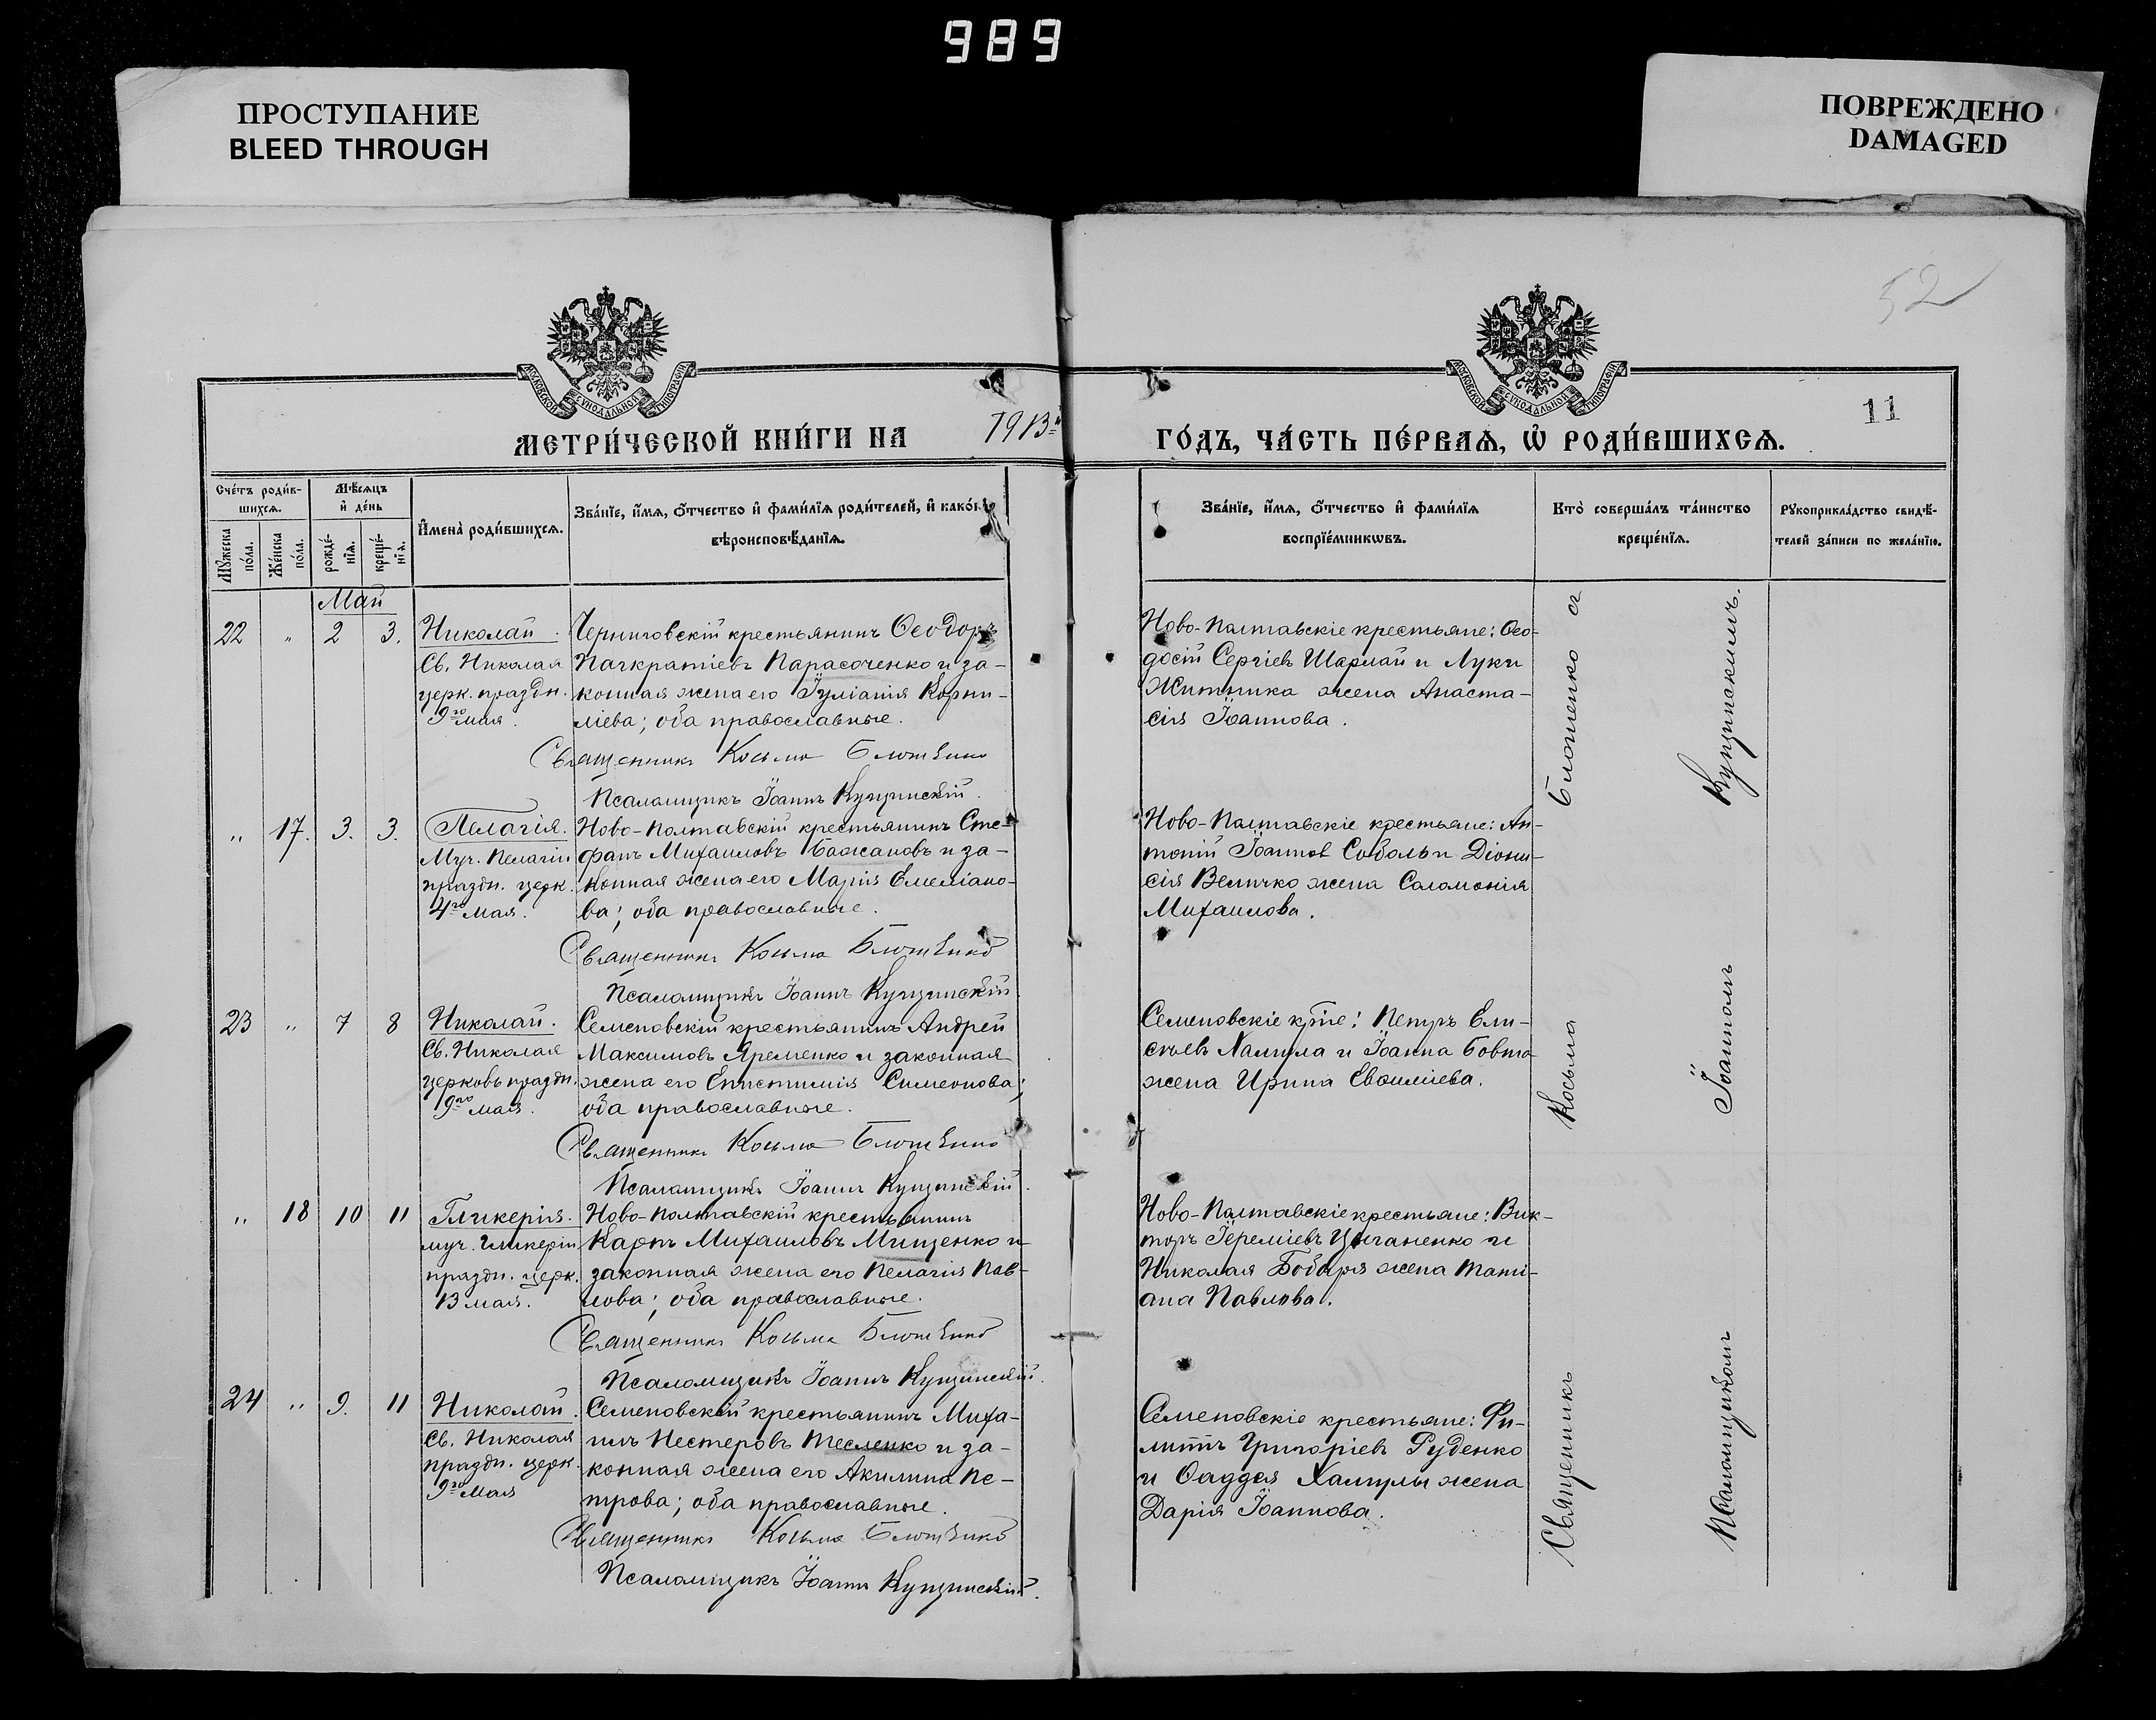 989
ПРОСТУПАНИЕ
BLEED THROUGH
ПОВРЕЖДЕНО
DAMAGED
52
11
МОСКОВСКОЙ СѴНОДАЛЬНОЙ ТИПОГРАФІИ
МОСКОВСКОЙ СѴНОДАЛЬНОЙ ТИПОГРАФІИ
МЕТРИ́ЧЕСКОЙ КНИ́ГИ НА 1913й ГО́ДЪ, ЧА́СТЬ ПЕ́РВАѦ, Ѡ҆ РОДИ́ВШИХСѦ.
Сче́тъ роди́в-
шихсѧ.
Мꙋ́жеска по́ла.
Же́нска по́ла.
Мѣ́сѧцъ
и҆ де́нь
рожде́-
нїѧ.
креще́-
нїѧ.
И҆мена̀ роди́вшихсѧ.
Зва́нїе, и҆́мѧ, ѻ҆́тчество и҆ фами́лїѧ роди́телей, и҆ како́гѡ
вѣроисповѣ́данїѧ.
Зва́нїе, и҆́мѧ, ѻ҆́тчество и҆ фами́лїѧ
воспрїе́мникѡвъ.
Кто̀ соверша́лъ та́инство
креще́нїѧ.
Рꙋкоприкла́дство свидѣ́-
телей за́писи по жела́нїю.
Май
22 " 2 3. Николай.
Св. Николая
церк. праздн.
9го мая.
Черниговскій крестьянинъ Ѳеодоръ
Панкратіевъ Парасоченко и за-
конная жена его Іуліанія Корни-
ліева; оба православные.
Священникъ Косьма Блошенко
Псаломщикъ Іоаннъ Кущинскій.
Ново-Полтавскіе крестьяне: Ѳео-
досій Сергіевъ Шармай и Луки
Житника жена Анаста-
сія Іоаннова.
" 17. 3. 3. Пелагія.
Муч. Пелагіи
праздн. церк.
4го мая.
Ново-Полтавскій крестьянинъ Сте-
фанъ Михаиловъ Бажановъ и за-
конная жена его Марія Емеліано-
ва; оба православные.
Священникъ Косьма Блошенко
Псаломщикъ Іоаннъ Кущинскій
Ново-Полтавскіе крестьяне: Ан-
тоній Іоанновъ Соболь и Діони-
сія Величко жена Саломонія
Михаилова.
23 " 7 8 Николай.
Св. Николая
церковь праздн.
9го мая.
Семеновскій крестьянинъ Андрей
Максимовъ Яременко и законная
жена его Епистимія Симеонова;
оба православные.
Священникъ Косьма Блошенко
Псаломщикъ Іоаннъ Кущинскій.
Семеновскіе кр-не: Петръ Ели-
сѣевъ Хамула и Іоанна Бовта
жена Ирина Евѳиміева.
" 18 10 11 Гликерія.
муч. Гликеріи
праздн. церк.
13 мая.
Ново-Полтавскій крестьянинъ
Карпъ Михаиловъ Мищенко и
законная жена его Пелагія Пав-
лова; оба православные.
Священникъ Косьма Блошенко
Псаломщикъ Іоаннъ Кущинскій.
Ново-Полтавскіе крестьяне: Вик-
торъ Іереміевъ Цыганенко и
Николая Бобыря жена Тати-
ана Павлова.
24 " 9. 11 Николай.
Св. Николая
праздн. церк.
9го мая
Семеновскій крестьянинъ Миха-
илъ Нестеровъ Тесленко и за-
конная жена его Акилина Пе-
трова; оба православные.
Священникъ Косьма Блошенко
Псаломщикъ Іоаннъ Кущинскій.
Семеновскіе крестьяне: Фи-
липпъ Григоріевъ Руденко
и Ѳаддея Хамулы жена
Дарія Іоаннова.
Священникъ Косьма Блошенко съ
Псаломщикомъ Іоанномъ Кущинскимъ.